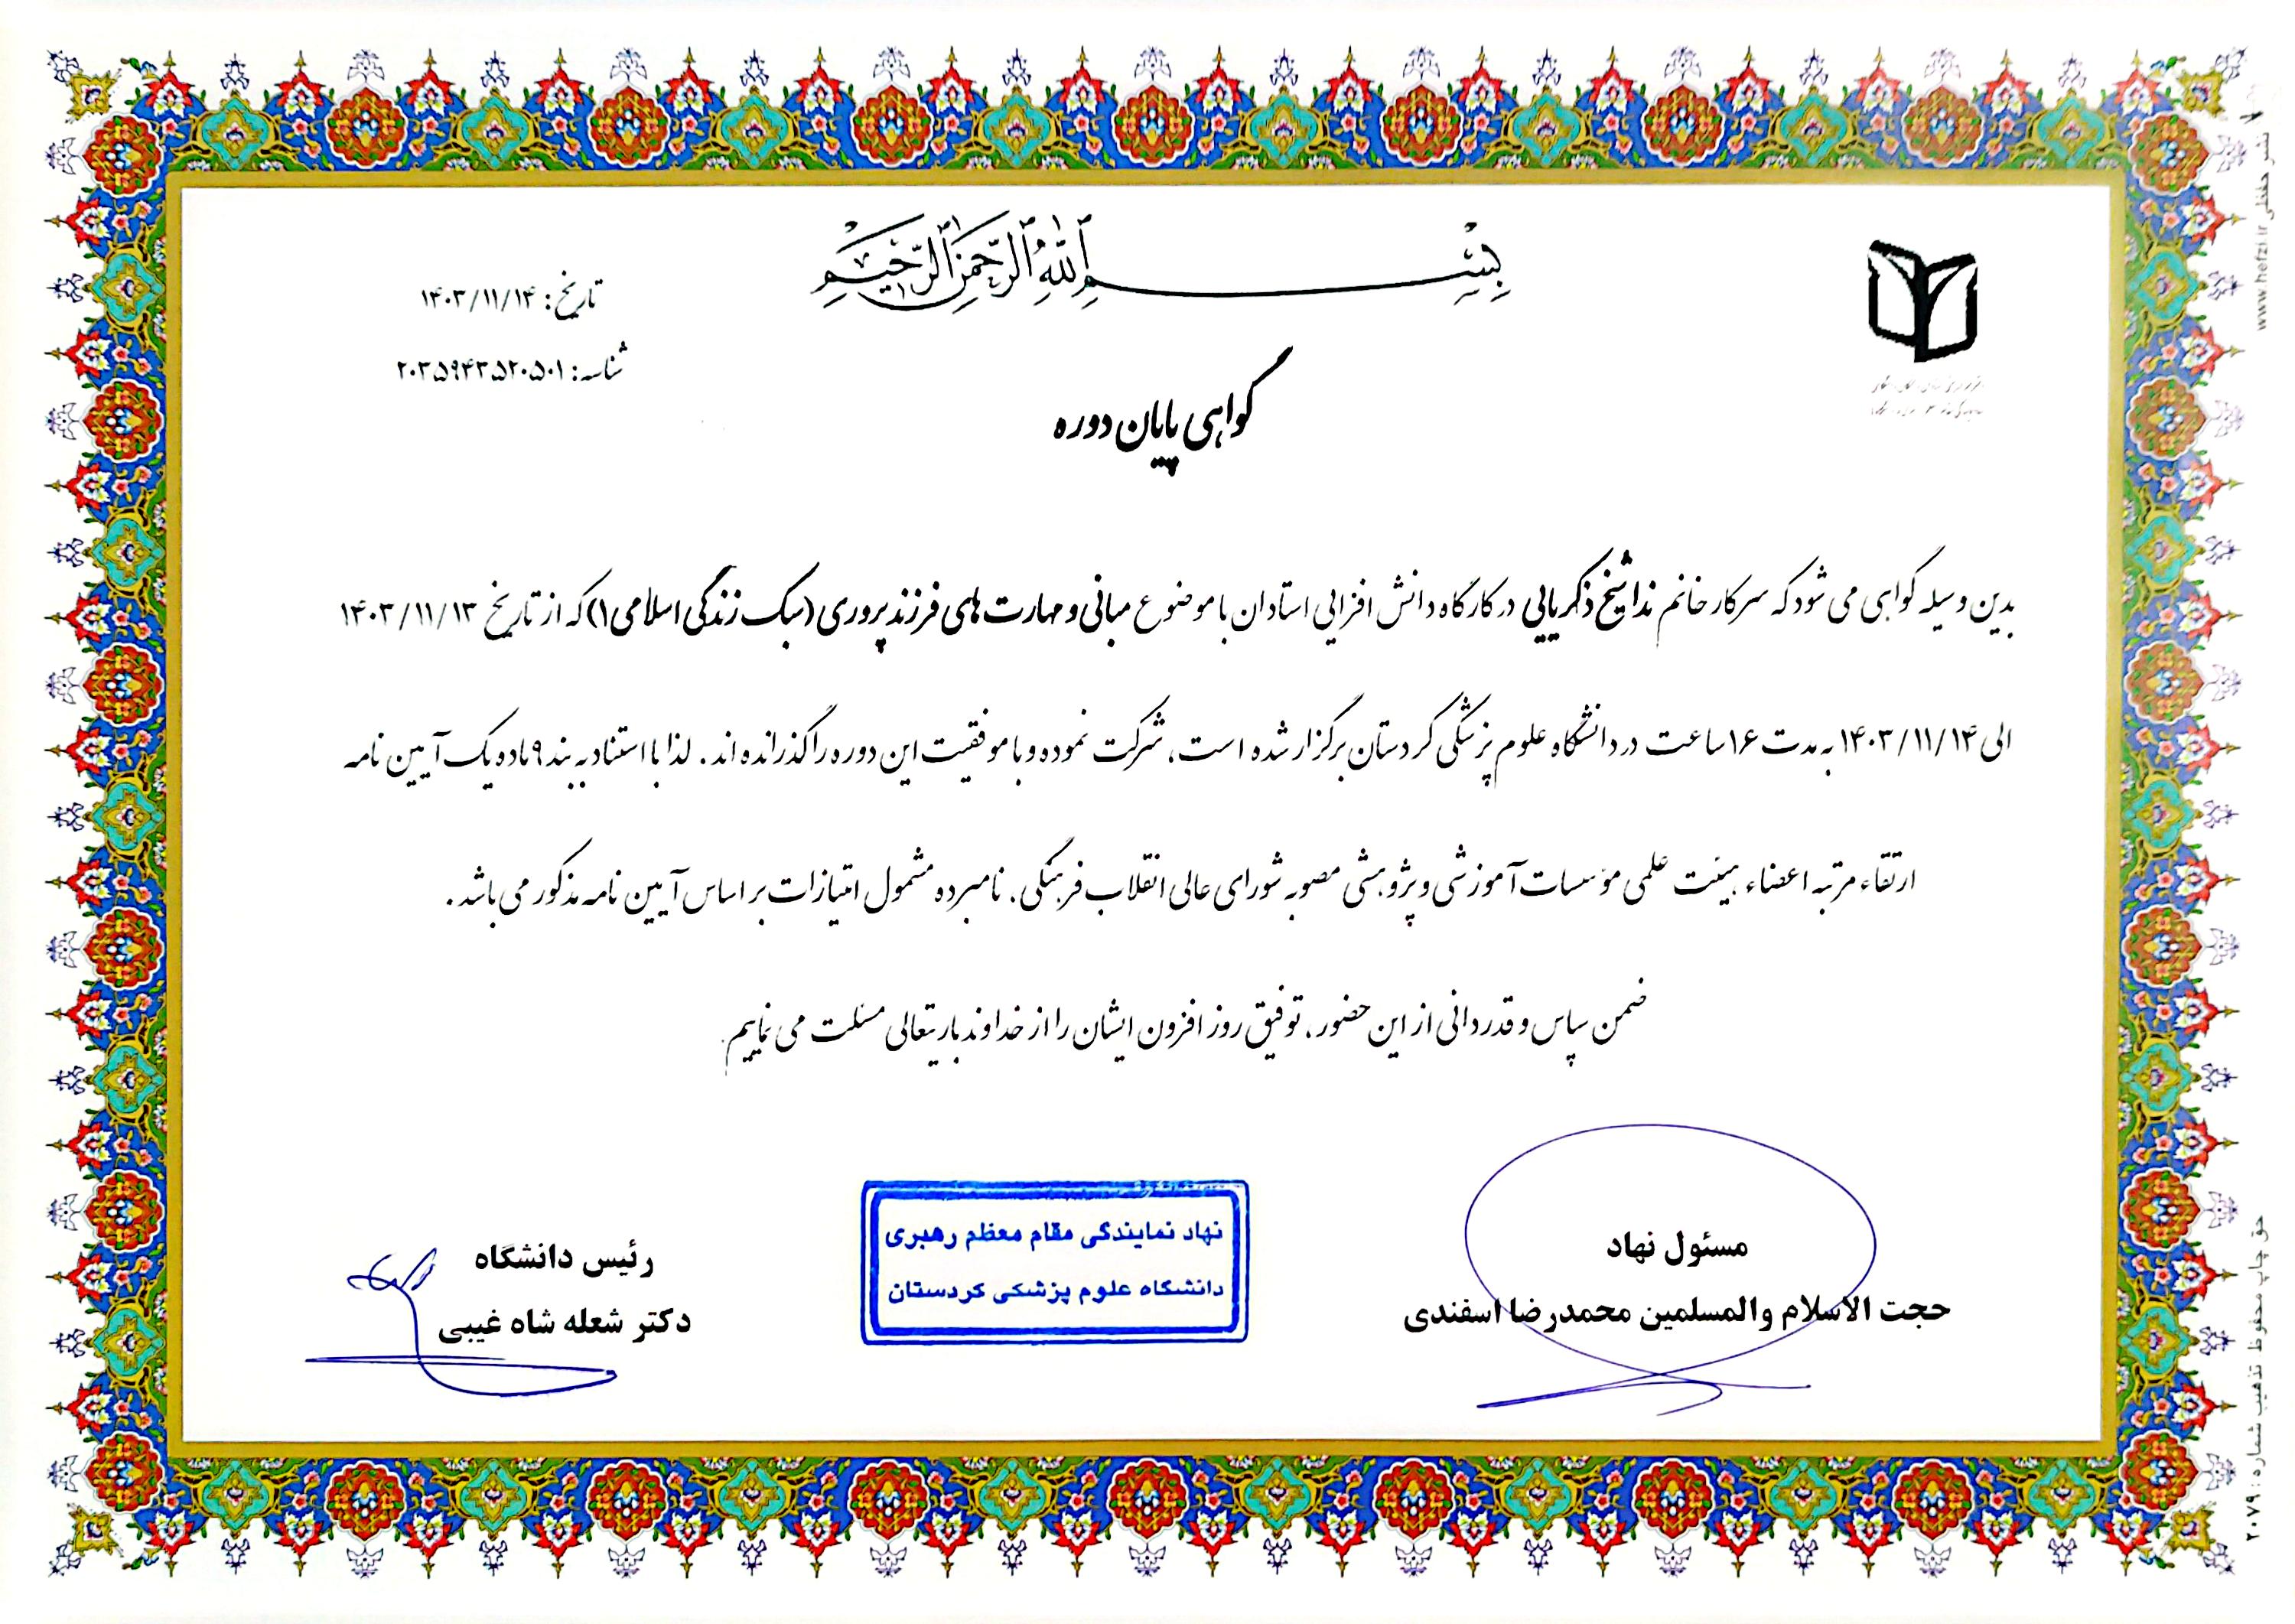 بسم الله الرحمن الرحیم
تاریخ: ۱۴۰۳/۱۱/۱۴
شناسه: ۲۰۳۵۹۴۳۵۲۰۵۰۱
گواهی پایان دوره
بدین وسیله گواهی می شود که سرکار خانم ندا شیخ ذکریایی در کارگاه دانش افزایی استادان با موضوع مبانی و مهارت های فرزند پروری (سبک زندگی اسلامی۱) که از تاریخ ۱۴۰۳/۱۱/۱۳
الی ۱۴۰۳/۱۱/۱۴ به مدت ۱۶ ساعت در دانشگاه علوم پزشکی کردستان برگزار شده است، شرکت نموده و با موفقیت این دوره را گذرانده اند. لذا با استناد به بند ۹ ماده یک آیین نامه
ارتقاء مرتبه اعضاء هیئت علمی مؤسسات آموزشی و پژوهشی مصوبه شورای عالی انقلاب فرهنگی، نامبرده مشمول امتیازات بر اساس آیین نامه مذکور می باشد.
ضمن سپاس و قدردانی از این حضور، توفیق روز افزون ایشان را از خداوند باریتعالی مسئلت می نماییم
مسئول نهاد
حجت الاسلام والمسلمین محمدرضا اسفندی
نهاد نمایندگی مقام معظم رهبری
دانشگاه علوم پزشکی کردستان
رئیس دانشگاه
دکتر شعله شاه غیبی
نشر حفظی www.hefzi.ir
حق چاپ محفوظ تذهیب شماره: ۲۰۷۹